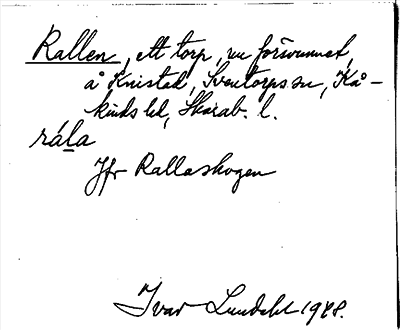 Rallen, ett torp, nu försvunnet,
å Knistad, Sventorps sn, Kå-
kinds hd, Skarab. l.
rála
Jfr Rallaskogen
Ivar Lundahl 1928.